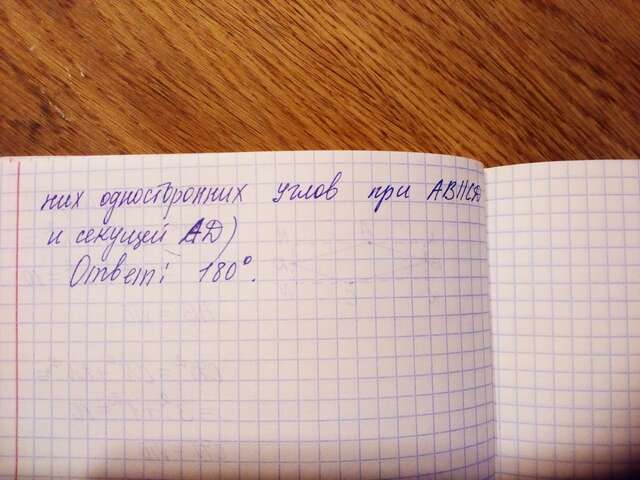 них односторонних углов при AB||CD
и секущей АД)
Ответ: 180°.